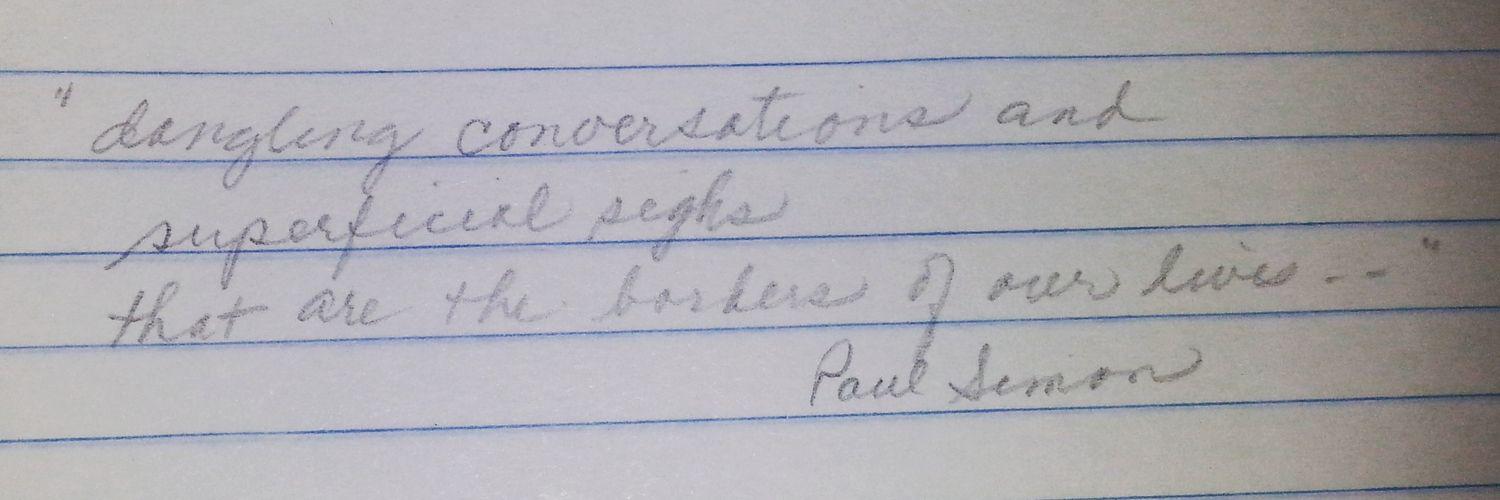 "dangling conversations and
superficial sighs
that are the borders of our lives--"
Paul Simon